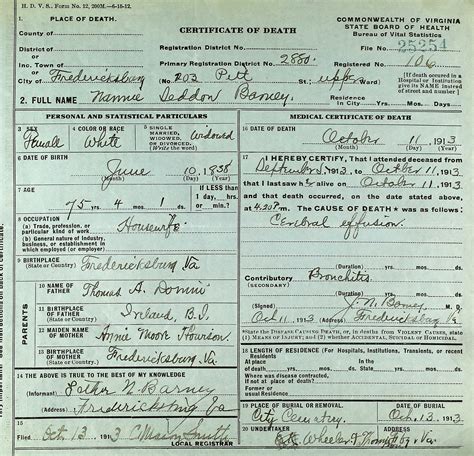 H. D. V. S., Form No. 12, 200M.—6-18-12.
1 PLACE OF DEATH.
CERTIFICATE OF DEATH
COMMONWEALTH OF VIRGINIA
STATE BOARD OF HEALTH
Bureau of Vital Statistics
County of
District of
or
Inc. Town of
or
City of Fredericksburg
Registration District No.
25254
Primary Registration District No. 2880
Registered No. 106
(No. 203 Pitt
[If death occured in a
Hospital or Institution
give its NAME instead
of street and number.]
2 FULL NAME Nannie Seddon Barney
Residence
In City Yrs. Mos. Ds.
PERSONAL AND STATISTICAL PARTICULARS
MEDICAL CERTIFICATE OF DEATH
3 SEX
Female
4 COLOR OR RACE
White
5 SINGLE
MARRIED,
WIDOWED
or DIVORCED
(Write the word)
Widowed
16 DATE OF DEATH
October 11, 1913
(Month) (Day) (Year)
6 DATE OF BIRTH
June 10, 1838
(Month) (Day) (Year)
17 I HEREBY CERTIFY, That I attended deceased from
1913 to October 11, 1913
that I last saw h alive on October 11, 1913
and that death occurred, on the date stated above, at
4.20 P.M. The CAUSE OF DEATH was as follows:
Cerebral effusion
7 AGE
75 yrs. 4 mos. 1 ds.
If LESS than
1 day, hrs.
or min.?
8 OCCUPATION
(a) Trade, profession, or
particular kind of work Housewife
(b) General nature of industry,
business, or establishment in
which employed (or employer)
9 BIRTHPLACE
(State or Country) Fredericksburg Va
(Duration) yrs. mos. ds.
Contributory Bronchitis
(SECONDARY)
(Duration) yrs. mos. ds.
PARENTS
10 NAME OF
FATHER Thomas A.
11 BIRTHPLACE
OF FATHER
(State or Country) Ireland,
12 MAIDEN NAME
OF MOTHER Annie Moore
13 BIRTHPLACE
OF MOTHER
(State or Country) Fredericksburg Va
Barney
Oct 11 1913 Fredericksburg Va
*State the DISEASE CAUSING DEATH, or, in deaths from VIOLENT CAUSES, state
(1) MEANS OF INJURY; and (2) whether ACCIDENTAL, SUICIDAL, or HOMICIDAL.
18 LENGTH OF RESIDENCE (For Hospitals, Institutions, Transients, or recent
Residents)
At place
of death yrs. mos. ds.
In the
State yrs. mos. ds.
Where was disease contracted,
if not at place of death?
Former or
usual residence
14 THE ABOVE IS TRUE TO THE BEST OF MY KNOWLEDGE
(Informant) N. Barney
(Address) Fredericksburg Va
19 PLACE OF BURIAL OR REMOVAL
City Cemetery
DATE OF BURIAL
Oct. 13, 1913
15
Filed Oct 13 1913
LOCAL REGISTRAR
20 UNDERTAKER
Wheeler & Thompson
ADDRESS